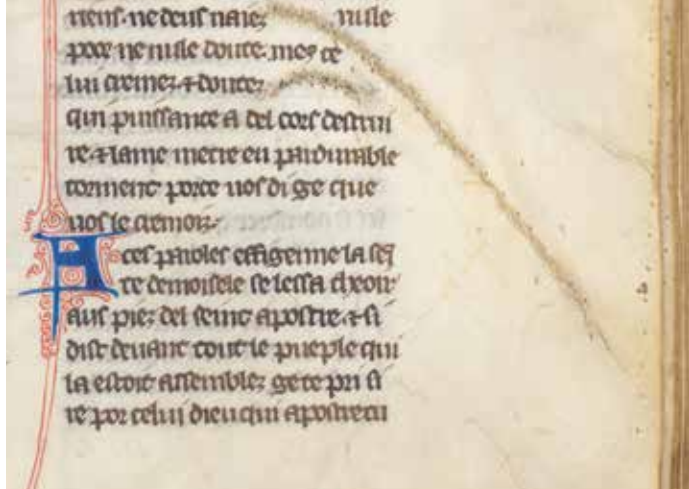 nens. ne deus naiez nule
poor ne nule doute. mes ce
lui cremez ⁊ doutez
qui puissance a del cors destrui
re ⁊ lame metre en pardurable
torment porce uos di ge que
uos le cremoiz.
A ces paroles effigenie la sei̅
te demoisele se lessa cheoir
aus piez del seint apostre. ⁊ si
dist deuant tout le pueple qui
la estoit assemblez ge te pri si
re por celui dieu qui apostre tu